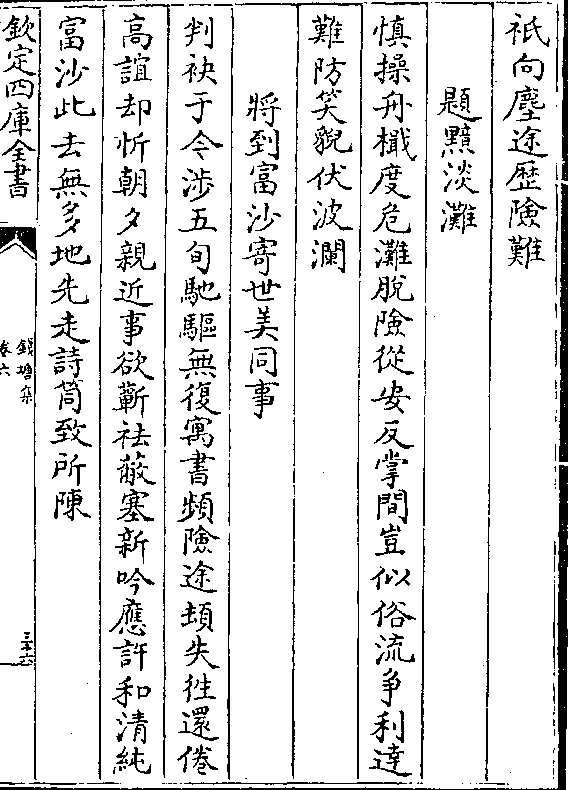 祇向塵途歴險難
題黯淡灘
慎操舟檝度危灘脫險從安反掌間豈似俗流爭利達
難防笑貌伏波瀾
將到富沙寄世美同事
判袂于今涉五旬馳驅無復寓書頻險途頓失徃還倦
高誼却忻朝夕親近事欲蘄袪蔽塞新吟應許和清純
富沙此去無多地先走詩筒致所陳
欽定四庫全書
錢塘集
卷六
三十六